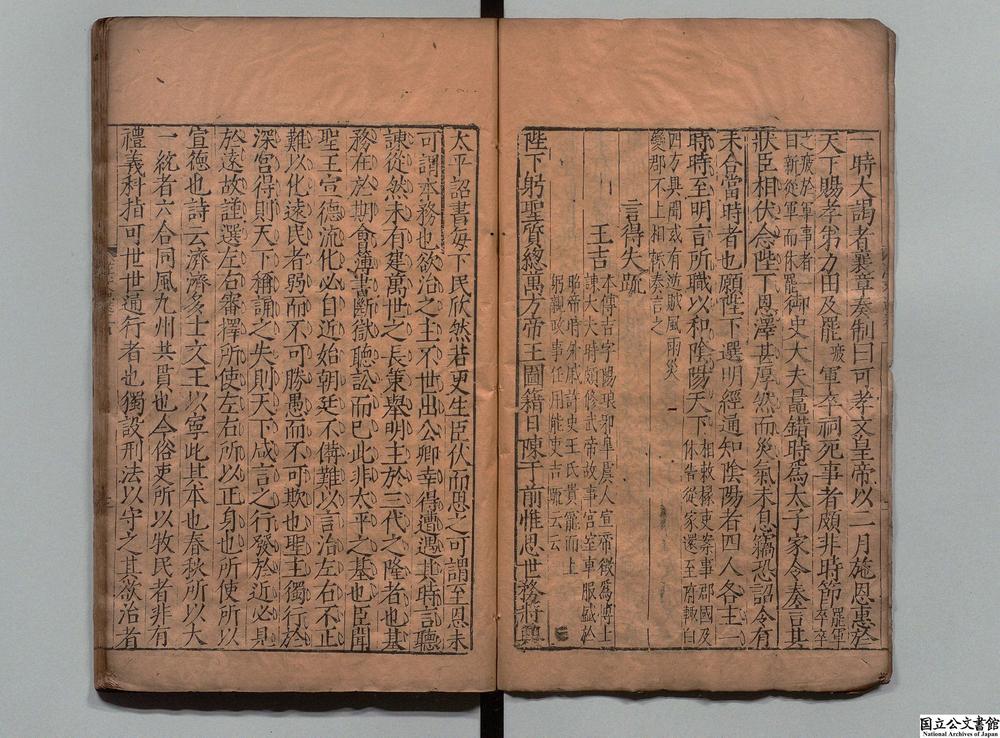 一時大謁者襄章奏制曰可孝文皇帝以二月施恩惠於
天下賜孝弟力田及罷軍卒祠死事者頗非時節
罷音疲罷軍卒卒之疲於軍事者一曰新從軍而休罷
御史大夫鼂錯時爲太子家令奏言其
狀臣相伏念陛下恩澤甚厚然而災氣未息竊恐詔令有
未合當時者也願陛下選明經通知陰陽者四人各主一
時時至明言所職以和陰陽天下
相敕掾吏案事郡國及休告從家還至府輒白
四方異聞或有逆賊風雨災變郡不上相輒奏言之
言得失疏
王吉
本傳吉字子陽琅邪皐虞人宣帝徵爲博士
諫大夫時頗修武帝故事宮室車服盛於
昭帝時外戚許史王氏貴寵而上
躬親政事任用能吏吉疏云云
陛下躬聖質總萬方帝王圖籍日陳于前惟思世務將興
太平詔書每下民欣然若更生臣伏而思之可謂至恩未
可謂本務也欲治之主不世出公卿幸得遭遇其時言聽
諫從然未有建萬世之長策舉明主於三代之隆者也其
務在於期會簿書斷獄聽訟而已此非太平之基也臣聞
聖王宣德流化必自近始朝廷不備難以言治左右不正
難以化遠民者弱而不可勝愚而不可欺也聖主獨行於
深宮得則天下稱誦之失則天下咸言之行發於近必見
於遠故謹選左右審擇所使左右所以正身也所使所以
宣德也詩云濟濟多士文王以寧此其本也春秋所以大
一統者六合同風九州共貫也今俗吏所以牧民者非有
禮義科指可世世通行者也獨設刑法以守之其欲治者
国立公文書館
National Archives of Japan